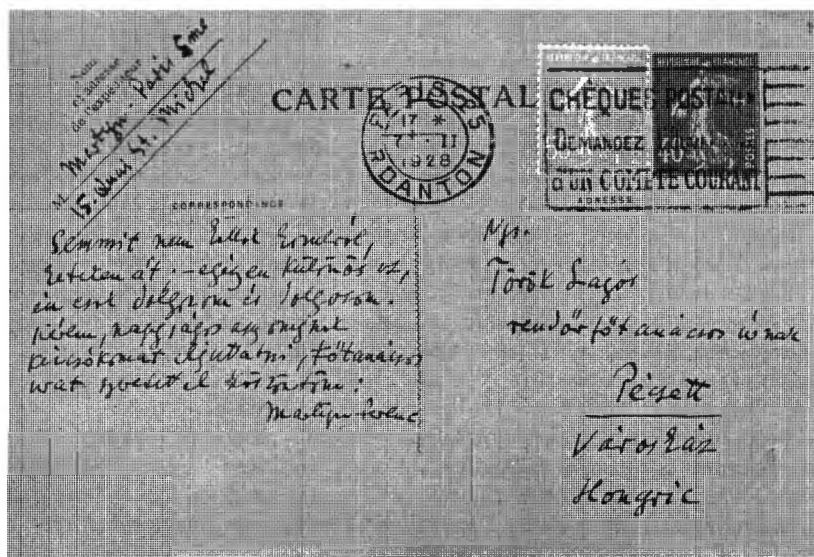 Nom
et adresse
de l'expéditeur
M. Martyn - Paris 5me
15. Quai St. Michel
CARTE POSTALE
PARIS 25
17 *
7 · II
1928
R DANTON
CHÈQUES POSTAUX
DEMANDEZ
D'UN COMPTE COURANT
CORRESPONDANCE
ADRESSE
Semmit nem hallok
heteken át. — egészen különös ez,
én csak dolgozom és dolgozom.
Kérem, nagyságos asszonynak
kézcsókomat átjuttatni, főtanácsos
urat szeretettel köszöntöm:
Martyn Ferenc
Ngs.
Török Lajos
rendőrfőtanácsos úrnak
Pécsett
Városház
Hongrie